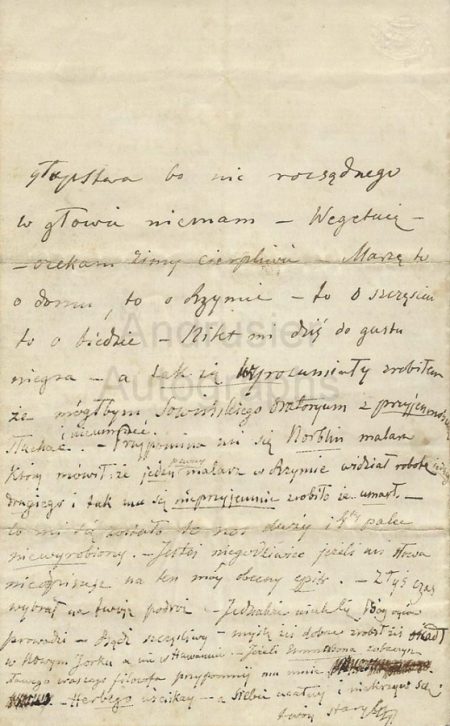 głupstwa bo nic rozsądnego
w głowie niemam – Wegetuię –
– czekam zimy cierpliwie – Marzę to
o domu, to o Rzymie – to o szczęściu
to o biedzie – Nikt mi dziś do gustu
niegra – a tak się wyrozumiały zrobiłem
że mógłbym Sowińskiego Oratoryum z przyjemnością
słuchać i nieumrzeć. – Przypomina mi się Norblin malarz
który mówił że jeden pewny malarz w Rzymie widział robotę
drugiego i tak mu się nieprzyjemnie zrobiło że umarł. –
Co mi się zostało to nos duży i 4ty palec
niewyrobiony. – Jesteś niegodziwiec jeżeli mi słowa
nieodpiszesz na ten mój obecny epist. – Złyś czas
wybrał na twoją podróż – Jednakże niech Cię Bóg ojców
prowadzi – Bądź szczęśliwy – myślę żeś dobrze zrobił żeś osiadł
w Nowym Jorku a nie w Hawannie – Jeżeli Emmersona zobaczysz
sławnego waszego filozofa przypomnij mu mnie
– Herbego uściskaj – a siebie ucałuj i nieskrzyw się
twój stary Ch
Andrusier
Autographs